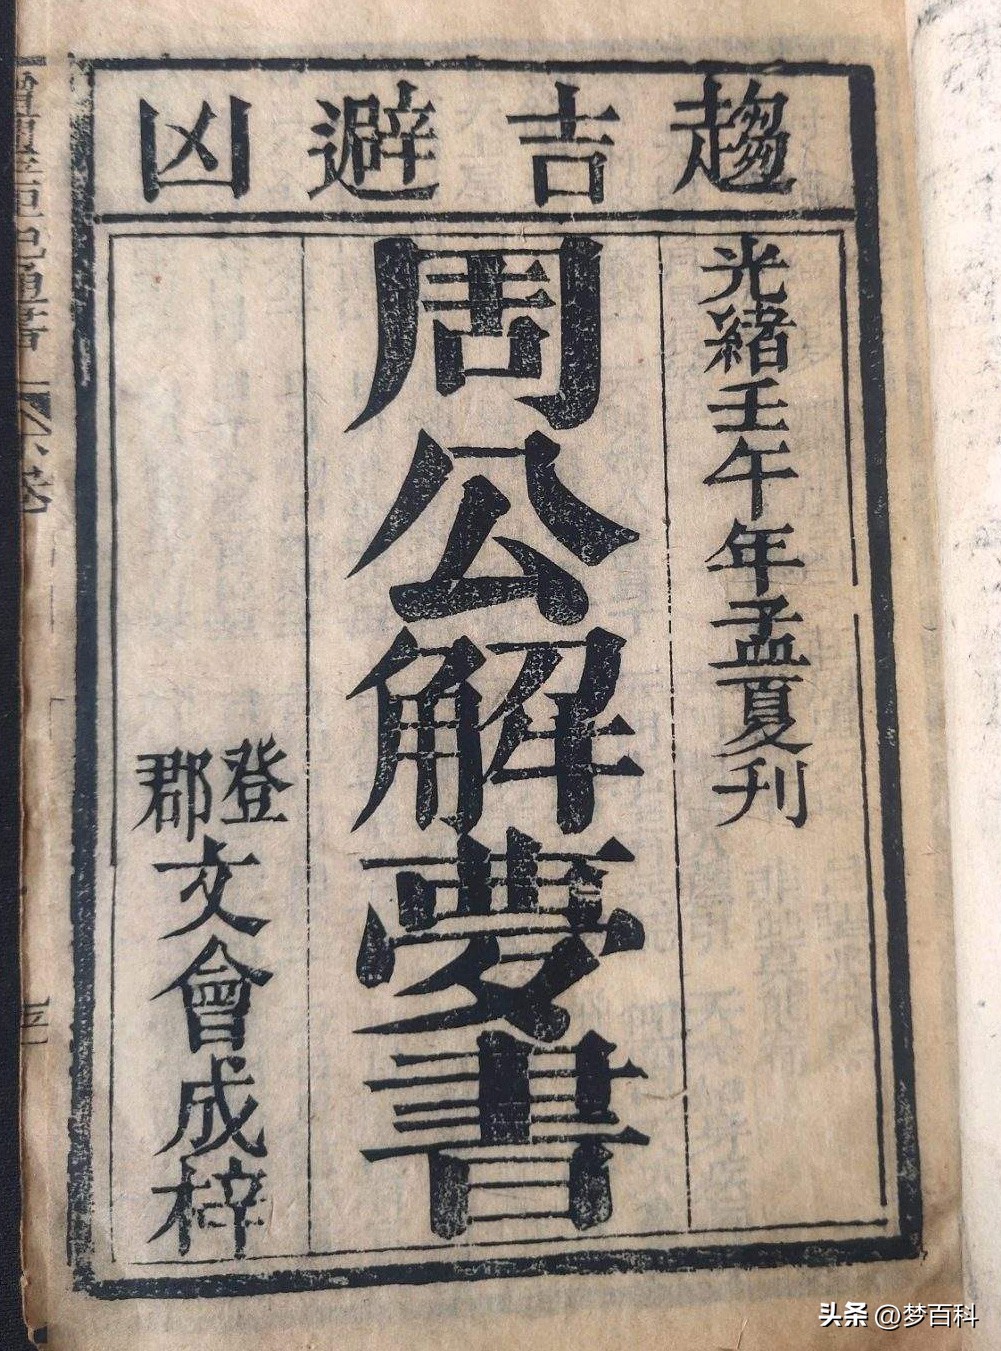 趨吉避凶
光緒壬午年孟夏刊
周公解夢書
登郡文會成梓
头条 @梦百科